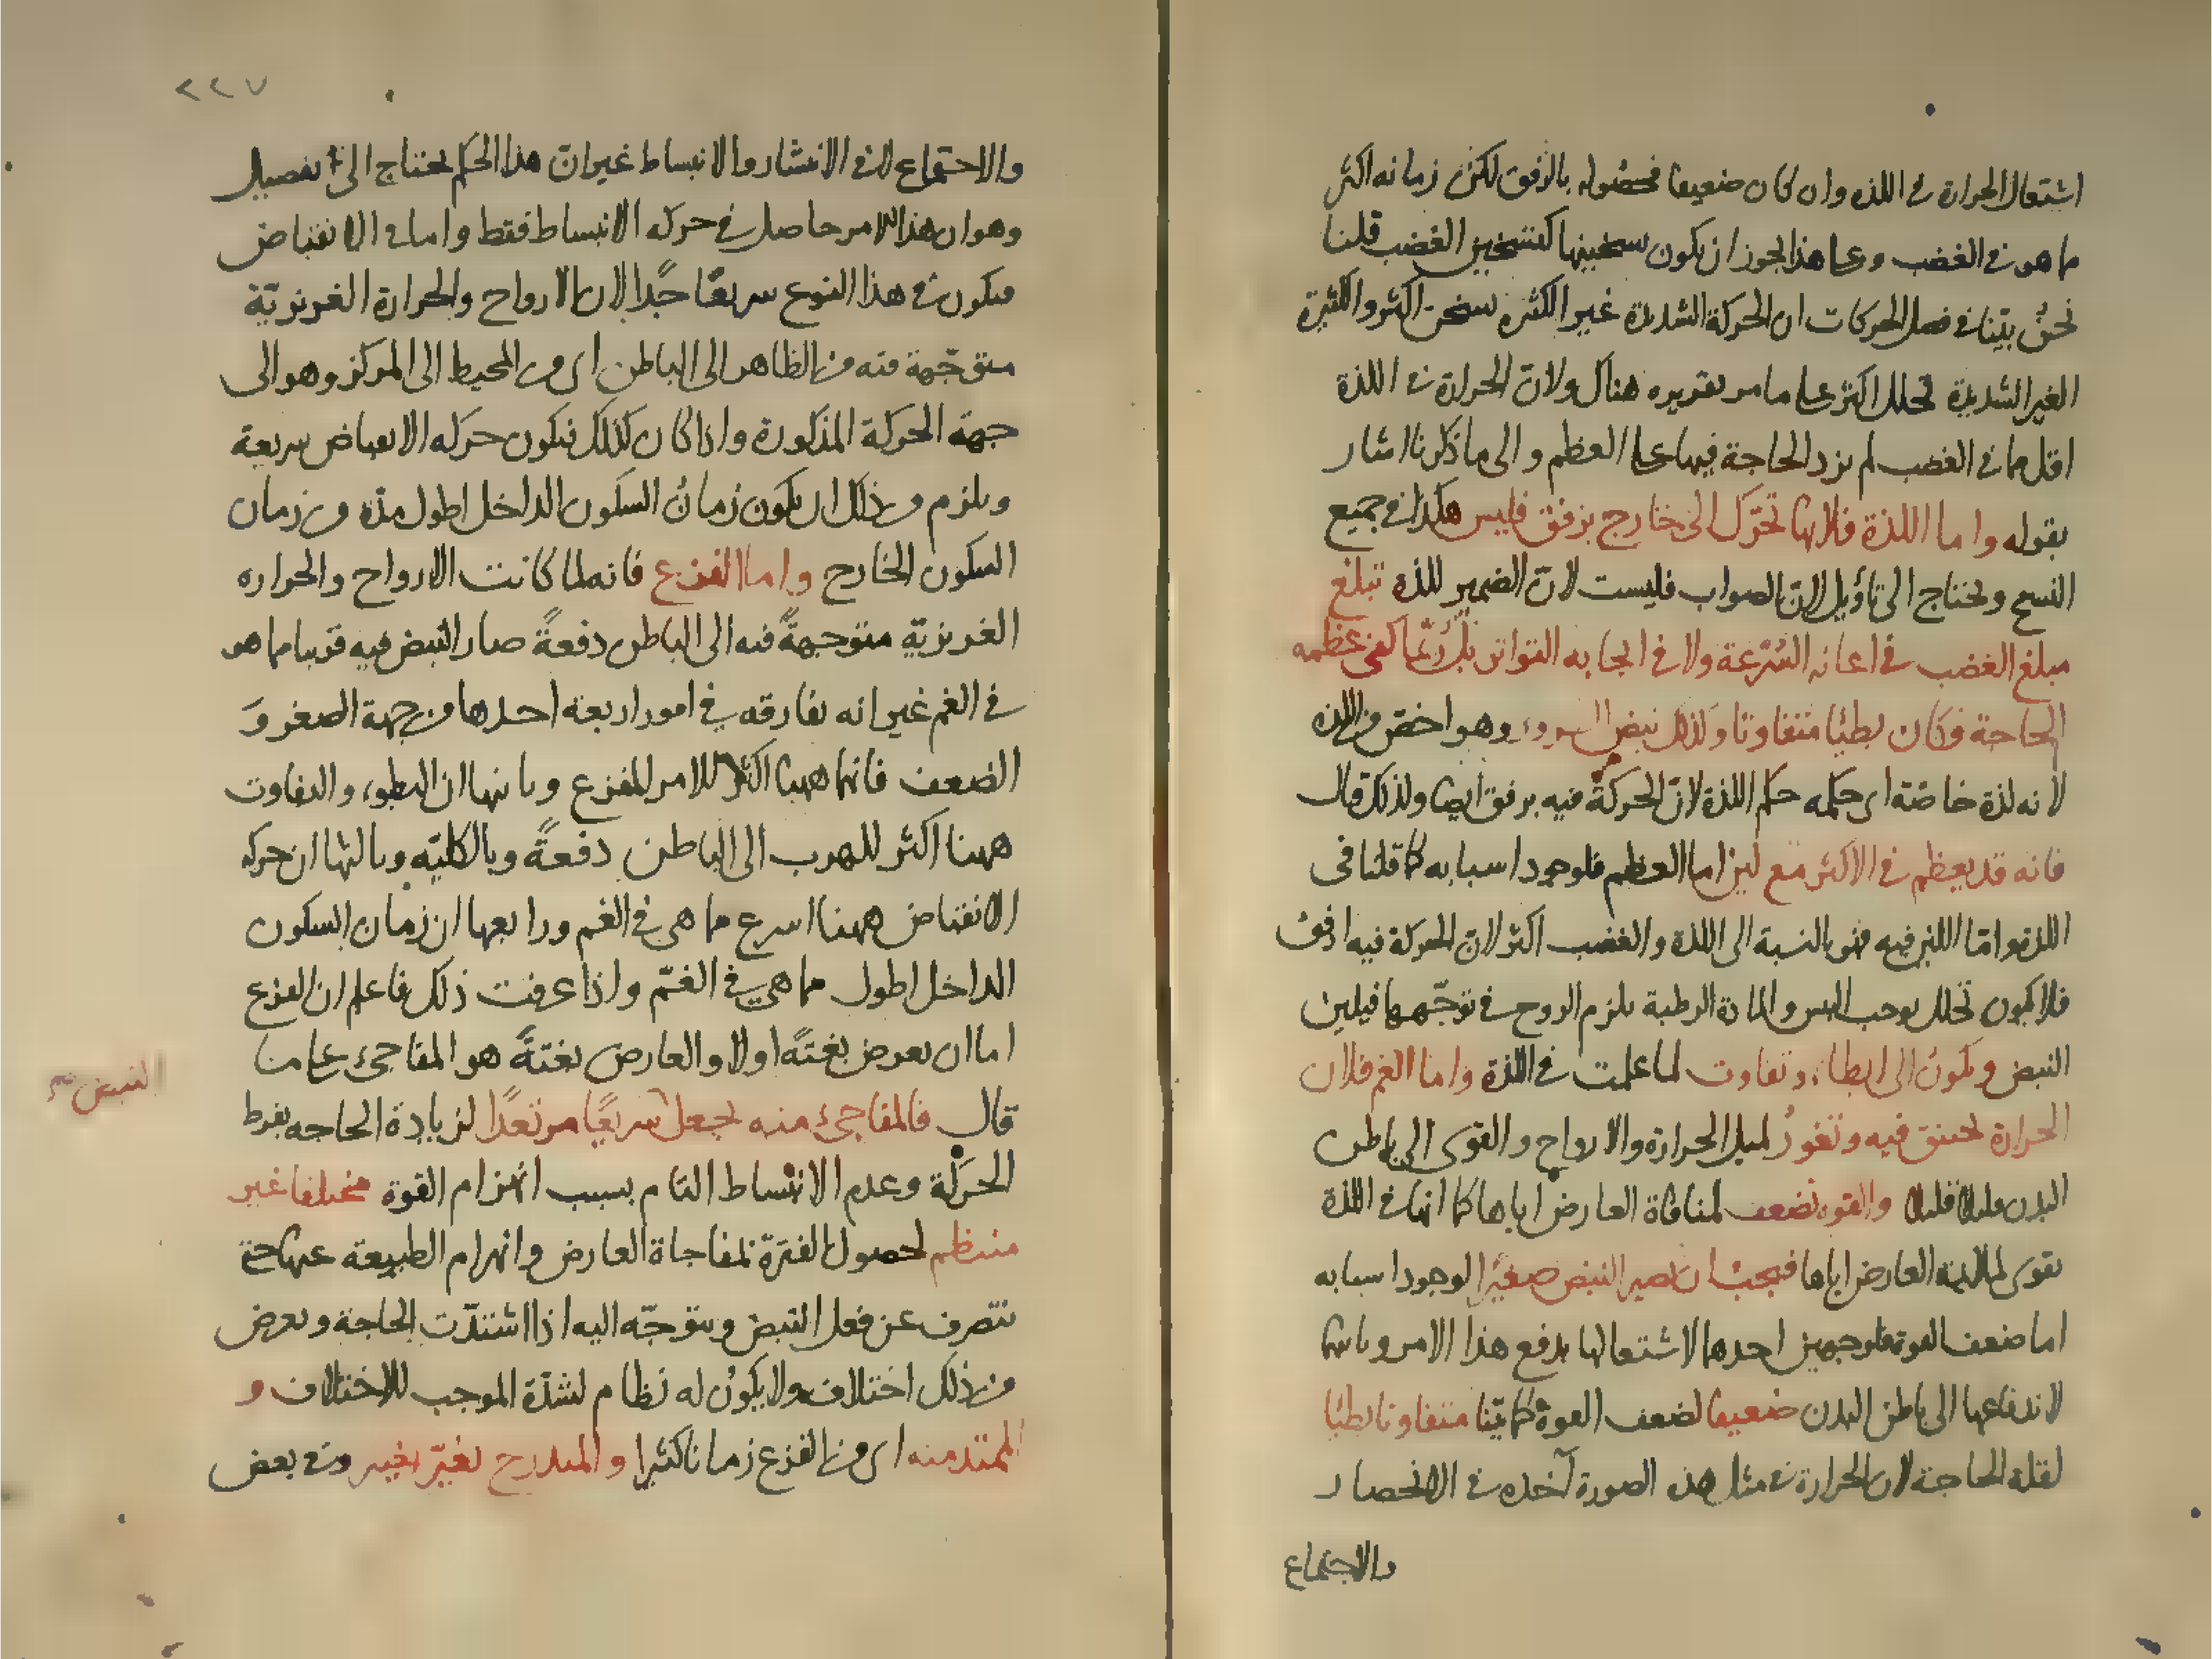 اشتعال الحرارة في اللذه وان كان ضعيفا فحصوله بالرفق لكن زمانه اكثر
ما هو في الغضب وعلى هذا يجوز ان يكون تسخينها كتسخين الغضب قلنا
نحن بيّنا في فصل الحركات ان الحركة الشديدة غير الكثيره تسخن اكثر والكثيرة
الغير الشديدة تحلل اكثر على ما مر تقريره هناك ولان الحرارة في اللذة
اقل مما في الغضب لم يزد الحاجة فيها على العظم والى ما ذكرنا اشار
بقوله واما اللذة فلانها تحرّك الى خارج برفق فليس هكذا في جميع
النسخ ويحتاج الى تأويل لان الصواب فليست لان الضمير للذه تبلغ
مبلغ الغضب في اعانه السّرعة ولا في ايجابه التواتر بل ربّما كفى عظمه
الحاجة فكان بطئا متفاوتا وكذلك نبض السرور وهو اخص من اللذه
لانه لذة خاصّة اى حكمه حكم اللذة لان الحركة فيه برفق ايضا ولذلك قال
فانه قد يعظم في الاكثر مع لين اما العظم فلوجود اسبابه كما قلنا في
اللذة وامّا اللين فيه فهو بالنسبة الى اللذة والغضب اكثر لان الحركة فيه ارفق
فلا يكون تحلل يوجب اليبس والمادة الرطبة يلزم الروح في توجّهها فيلين
النبض ويكون الى ابطاء وتفاوت لما علمت في اللذة واما الغم فلان
الحرارة تختنق فيه وتغور لميل الحرارة والارواح والقوى الى باطن
البدن قليلا قليلا والقوه تضعف لمنافاة العارض اياها كما انها في اللذة
تقوى لملايمة العارض اياها فيجب ان يصير النبض صغيرا لوجود اسبابه
اما ضعف القوة فلوجهين احدهما لاشتغالها بدفع هذا الامر وثانيهما
لاندفاعها الى باطن البدن ضعيفا لضعف القوة كما بيّنا متفاوتا بطئا
لقلة الحاجة لان الحرارة في مثل هذه الصورة آخذه في الانحصار
والاجتماع
٢٢٧
والاجتماع لا في الانتشار والانبساط غير ان هذا الحكم يحتاج الى تفصيل
وهو ان هذا الامر حاصل في حركه الانبساط فقط واما في الانقباض
فيكون في هذا النوع سريعًا جدّا لان الارواح والحرارة الغريزيّة
متوجّهة فيه من الظاهر الى الباطن اى من المحيط الى المركز وهو الى
جهة الحركة المذكورة واذا كان كذلك فيكون حركه الانقباض سريعة
ويلزم من ذلك ان يكون زمان السكون الداخل اطول مدّة من زمان
السكون الخارج واما الفزع فانه لما كانت الارواح والحراره
الغريزيّة متوجهةً فيه الى الباطن دفعةً صار النبض فيه قريبا مما هو
في الغم غير انه يفارقه في امور اربعة احدها من جهة الصغر و
الضعف فانهما ههنا اكثر للامر المفزع وثانيها ان البطوء والتفاوت
ههنا اكثر للهرب الى الباطن دفعةً وبالكليّه وثالثها ان حركه
الانقباض ههنا اسرع مما هي في الغم ورابعها ان زمان السكون
الداخل اطول مما هي في الغمّ واذا عرفت ذلك فاعلم ان الفزع
اما ان يعرض بغتةً اولا والعارض بغتةً هو المفاجئ على ما
قال فالمفاجئ منه يجعل النبض سريعًا مرتعدًا لزيادة الحاجه بفرط
الحركة وعدم الانبساط التام بسبب انهزام القوة مختلفا غير
منتظم لحصول الفترة لمفاجاة العارض وانهزام الطبيعة عنها حتى
تتصرف عن فعل النبض ويتوجّه اليه اذا اشتدّت الحاجة ويعرض
من ذلك اختلاف ولا يكون له نظام لشدّة الموجب للاختلاف و
الممتد منه اى من الفزع زمانا كثيرا والمتدرج يغيّر تغيير وفي بعض